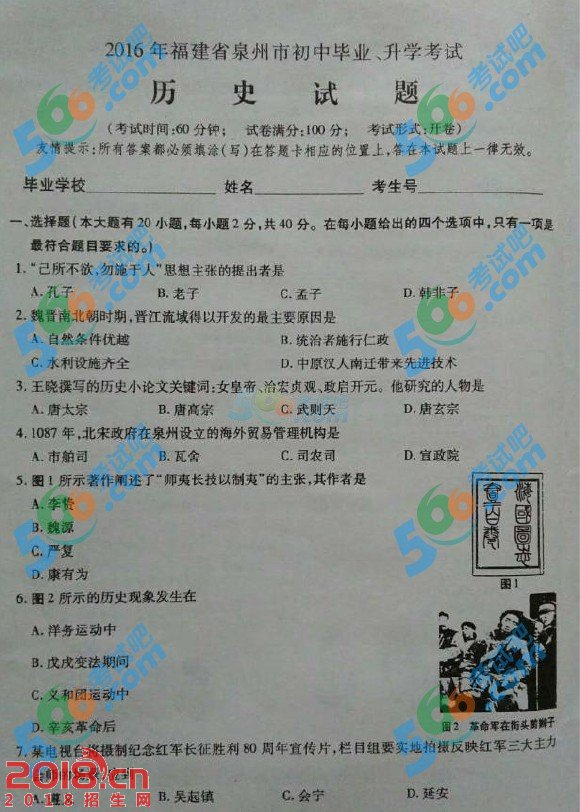 2016年福建省泉州市初中毕业、升学考试
历史试题
(考试时间:60分钟; 试卷满分:100分; 考试形式:开卷)
友情提示:所有答案都必须填涂(写)在答题卡相应的位置上,答在本试题上一律无效。
毕业学校 姓名 考生号
一、选择题(本大题有20小题,每小题2分,共40分。在每小题给出的四个选项中,只有一项是
最符合题目要求的。)
1.“己所不欲,勿施于人”思想主张的提出者是
A.孔子 B.老子 C.孟子 D.韩非子
2.魏晋南北朝时期,晋江流域得以开发的最主要原因是
A.自然条件优越 B.统治者施行仁政
C.水利设施齐全 D.中原汉人南迁带来先进技术
3.王晓撰写的历史小论文关键词:女皇帝、治宏贞观、政启开元。他研究的人物是
A.唐太宗 B.唐高宗 C.武则天 D.唐玄宗
4.1087年,北宋政府在泉州设立的海外贸易管理机构是
A.市舶司 B.瓦舍 C.司农司 D.宣政院
5.图1所示著作阐述了“师夷长技以制夷”的主张,其作者是
A.李贽
B.魏源
C.严复
D.康有为
海國圖志
图1
6.图2所示的历史现象发生在
A.洋务运动中
B.戊戌变法期间
C.义和团运动中
D.辛亥革命后
图2 革命军在街头剪辫子
7.某电视台将摄制纪念红军长征胜利80周年宣传片,栏目组要实地拍摄反映红军三大主力
B.吴起镇 C.会宁 D.延安
566考试吧.com
2018.cn
2018招生网